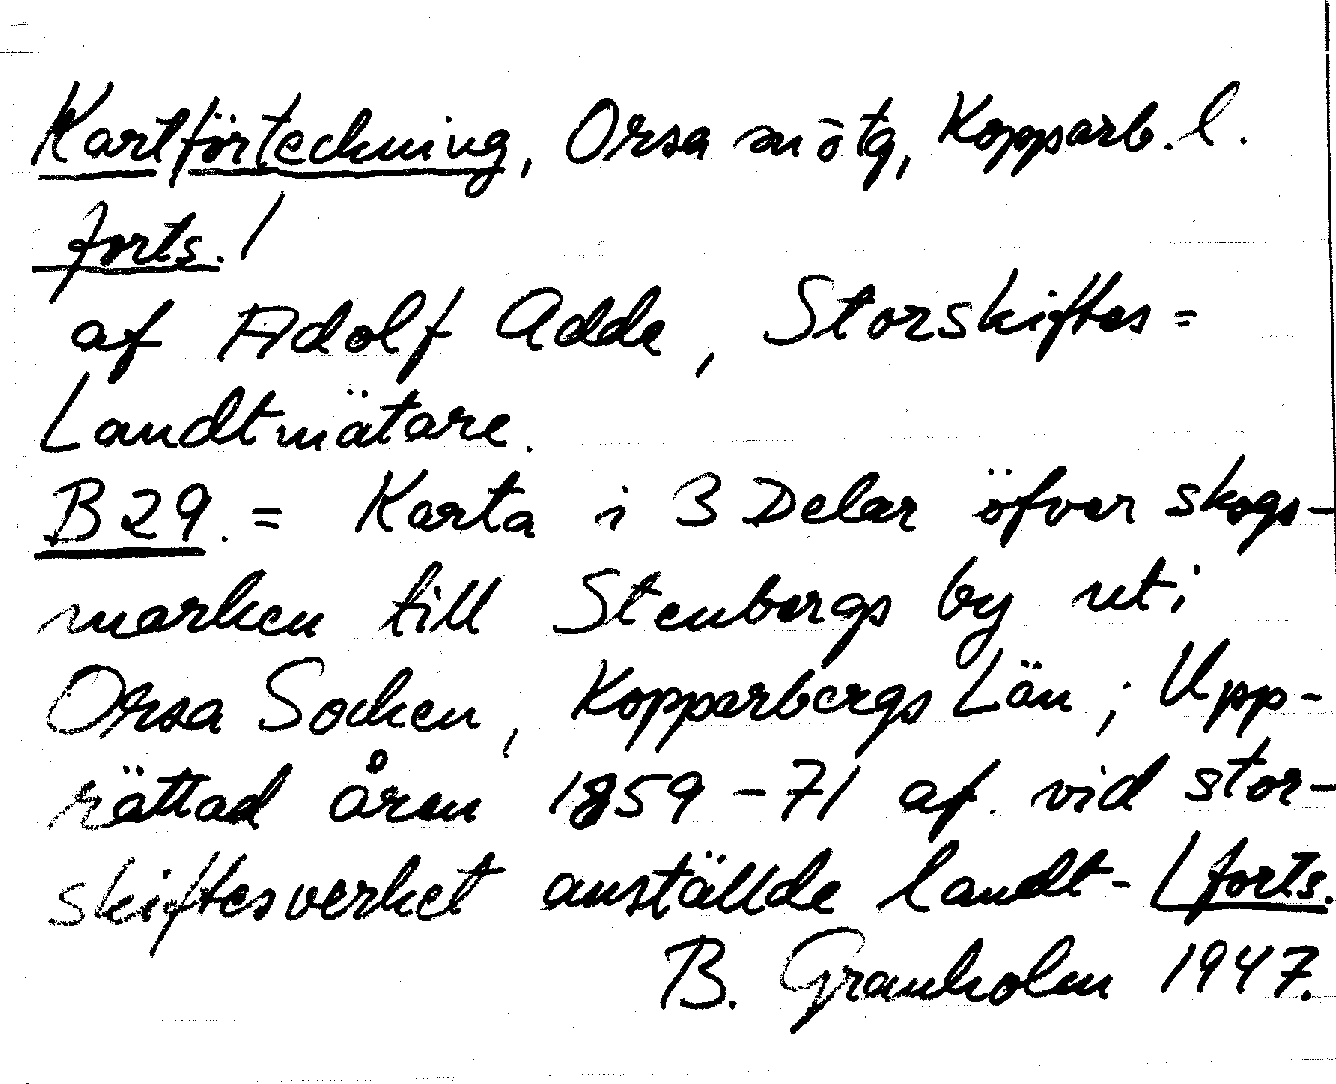 Kartförteckning, Orsa mötg, Kopparb. l.
forts. /
af Adolf Adde, Storskiftes =
Landtmätare.
B 29. = Karta i 3 Delar öfver skogs-
marken till Stenbergs by uti
Orsa Socken, Kopparbergs Län; Upp-
rättad åren 1859 - 71 af vid stor-
skiftesverket anställde landt- / forts.
B. Granholm 1947.